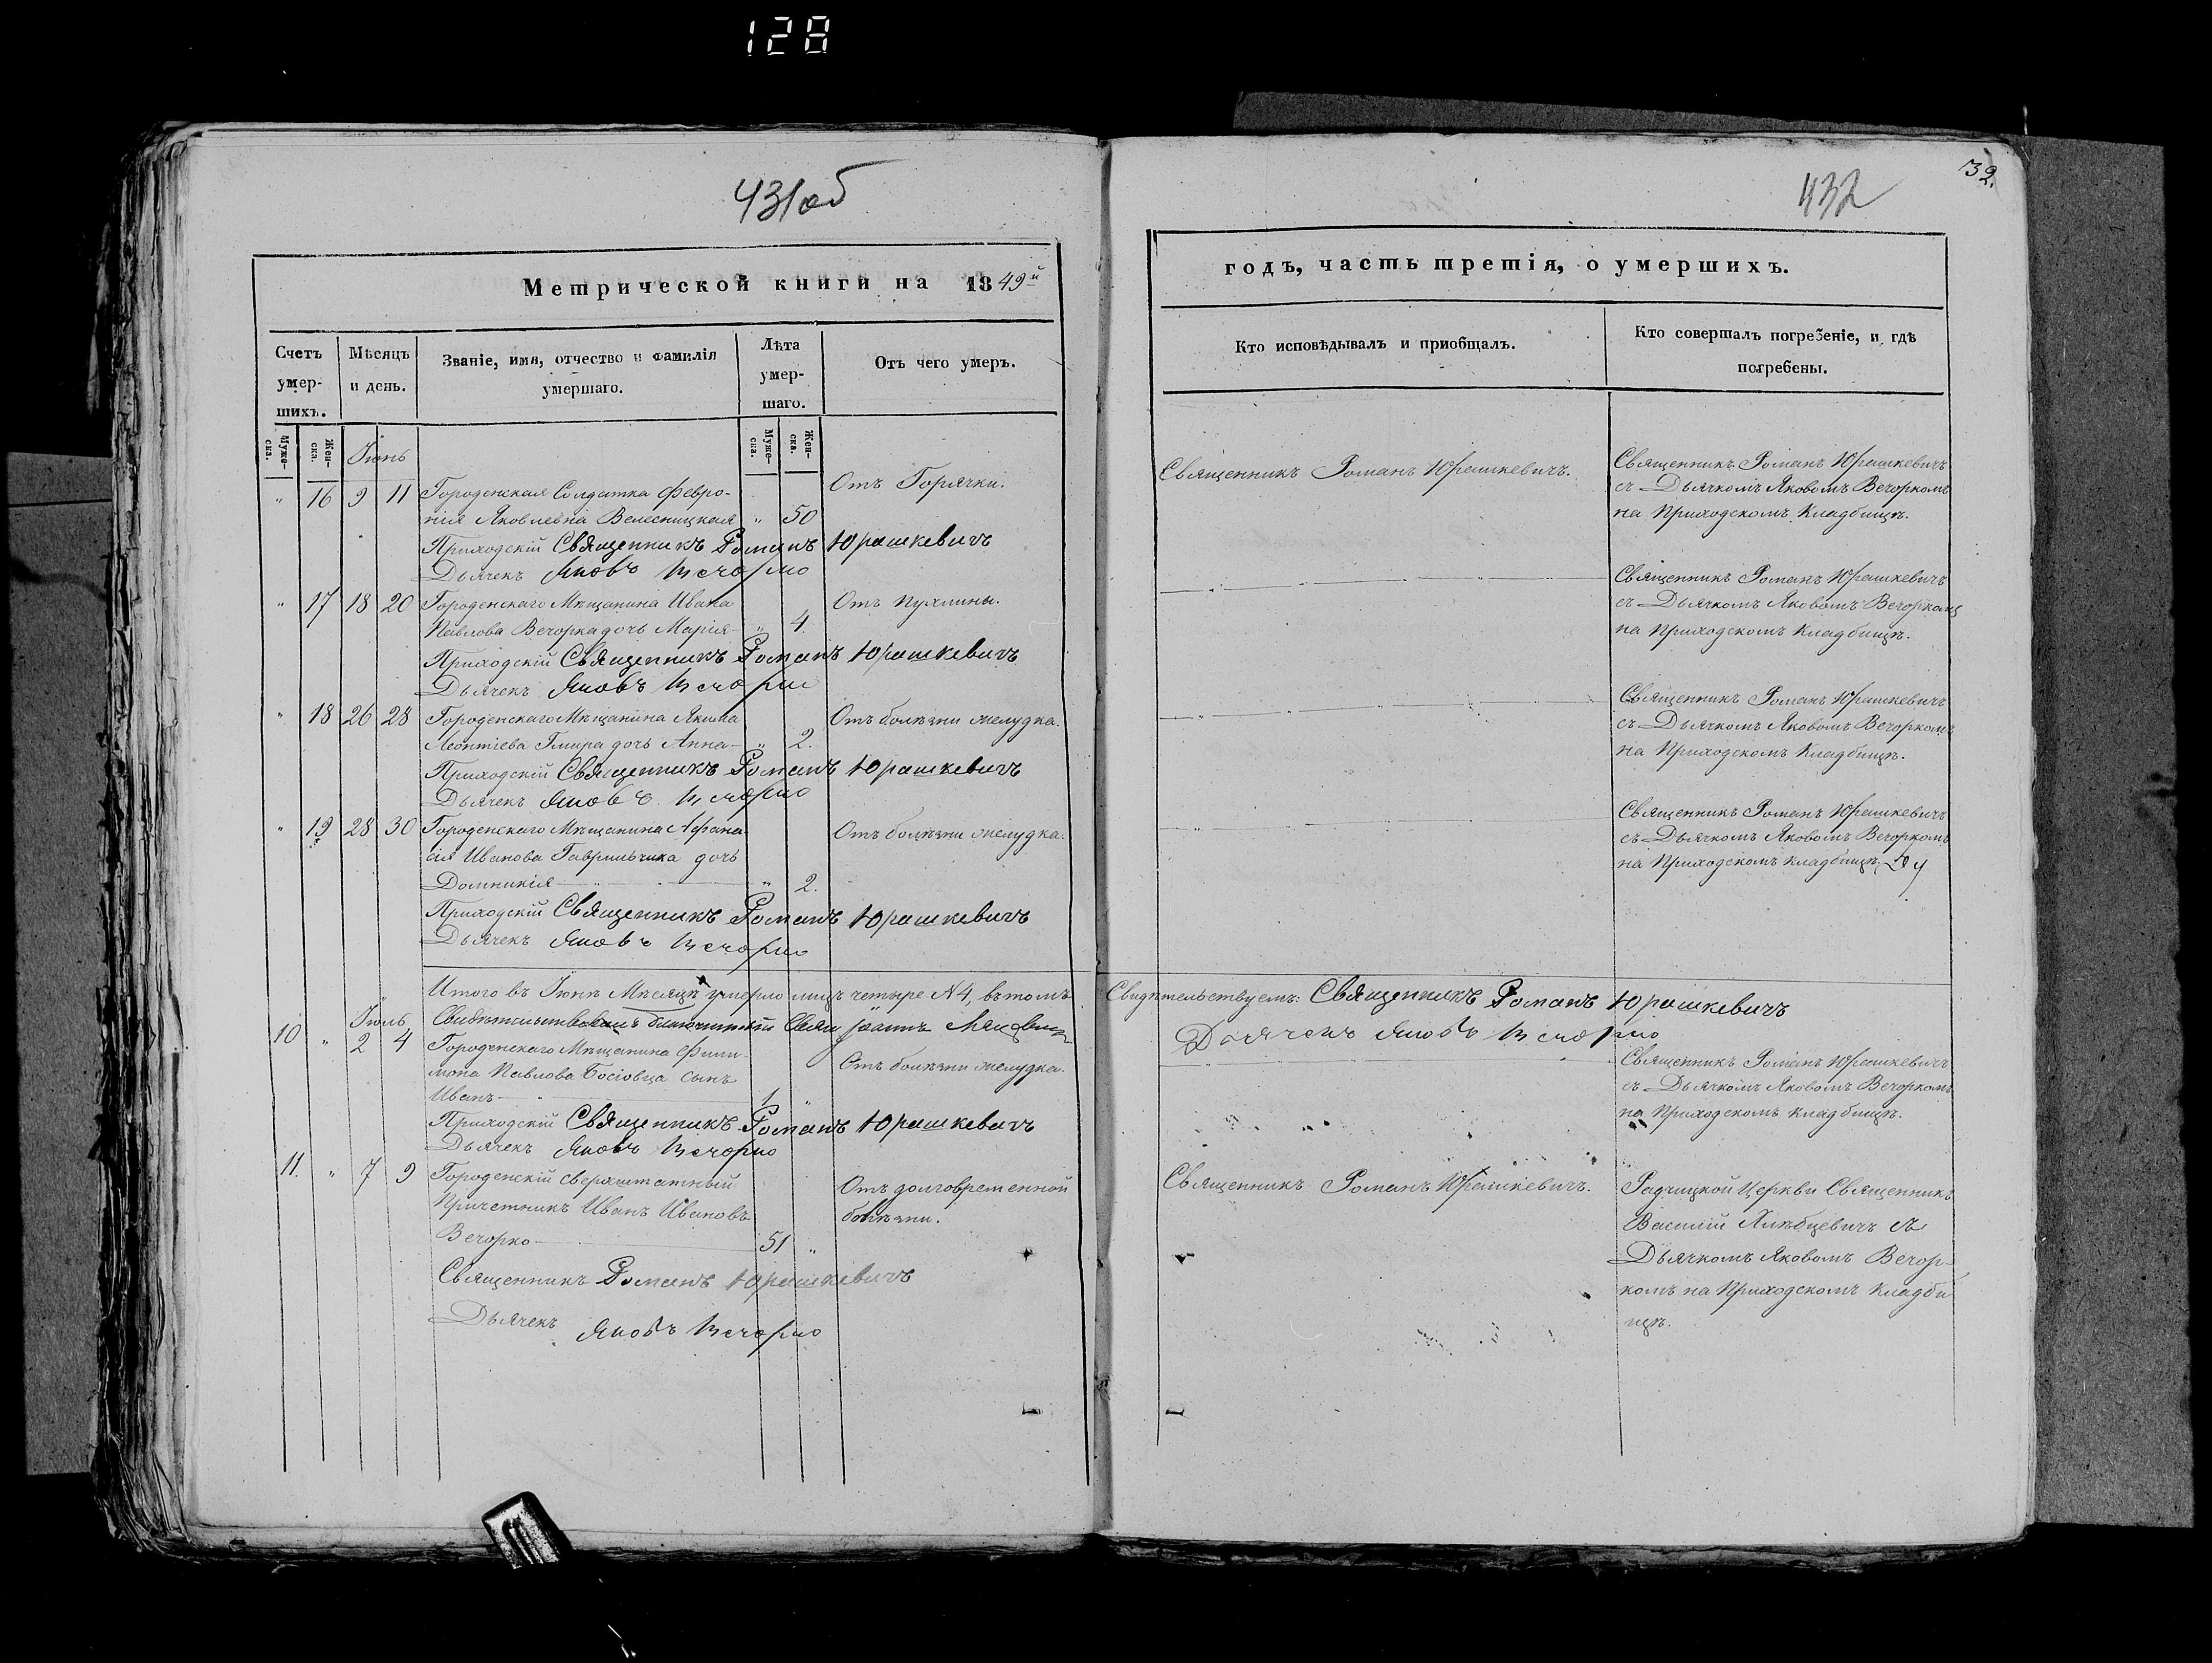 128
431об
Метрической книги на 1849й
Счетъ умер-шихъ.
Мѣсяцъ и день.
Званіе, имя, отчество и фамилія умершаго.
Лѣта умер-шаго.
Отъ чего умеръ.
Муже-ска.
Жен-ска.
Муже-ска.
Жен-ска.
Іюнь
" 16 9 11 Городенская Солдатка Февро-
нія Яковлевна Велесницкая " 50
Отъ Горячки.
Приходскій Священникъ Романъ Юрашкевичъ
Дьячекъ Яковъ Вечорко
" 17 18 20 Городенскаго Мѣщанина Ивана
Павлова Вечорка дочь Марія " 4.
Отъ пухлины.
Приходскій Священникъ Романъ Юрашкевичъ
Дьячекъ Яковъ Вечорко
" 18 26 28 Городенскаго Мѣщанина Якима
Леонтіева Гмира дочь Анна " 2.
Отъ болѣзни желудка.
Приходскій Священникъ Романъ Юрашкевичъ
Дьячекъ Яковъ Вечорко
" 19 28 30 Городенскаго Мѣщанина Афана-
сія Иванова Гаврильчика дочь
Домникія " 2.
Отъ болѣзни желудка.
Приходскій Священникъ Романъ Юрашкевичъ
Дьячекъ Яковъ Вечорко
Итого въ Іюнѣ Мѣсяцѣ умерло лицъ четыре N4, въ томъ
Іюль
10 " 2 4 Городенскаго Мѣщанина Фили-
мона Павлова Босіовца сынъ
Иванъ 1 "
Отъ болѣзни желудка.
Приходскій Священникъ Романъ Юрашкевичъ
Дьячекъ Яковъ Вечорко
11. " 7 9 Городенскій сверхштатный
Причетникъ Иванъ Ивановъ
Вечорко 51 "
Отъ долговременной
болѣзни.
Священникъ Романъ Юрашкевичъ
Дьячекъ Яковъ Вечорко
32.
432
годъ, часть третія, о умершихъ.
Кто исповѣдывалъ и приобщалъ.
Кто совершалъ погребеніе, и гдѣ погребены.
Священникъ Романъ Юрашкевичъ.
Священникъ Романъ Юрашкевичъ
съ Дьячкомъ Яковомъ Вечоркомъ
на Приходскомъ Кладбищѣ.
Священникъ Романъ Юрашкевичъ
съ Дьячкомъ Яковомъ Вечоркомъ
на Приходскомъ Кладбищѣ.
Священникъ Романъ Юрашкевичъ
съ Дьячкомъ Яковомъ Вечоркомъ
на Приходскомъ Кладбищѣ.
Священникъ Романъ Юрашкевичъ
съ Дьячкомъ Яковомъ Вечоркомъ
на Приходскомъ Кладбищѣ.
Свидѣтельствуемъ: Священникъ Романъ Юрашкевичъ
Дьячекъ Яковъ Вечорко
Священникъ Романъ Юрашкевичъ
съ Дьячкомъ Яковомъ Вечоркомъ
на Приходскомъ кладбищѣ.
Священникъ Романъ Юрашкевичъ.
Радчицкой Церкви Священникъ
Василій Хлѣбцевичъ съ
Дьячкомъ Яковомъ Вечор-
комъ на Приходскомъ Кладби
щѣ.